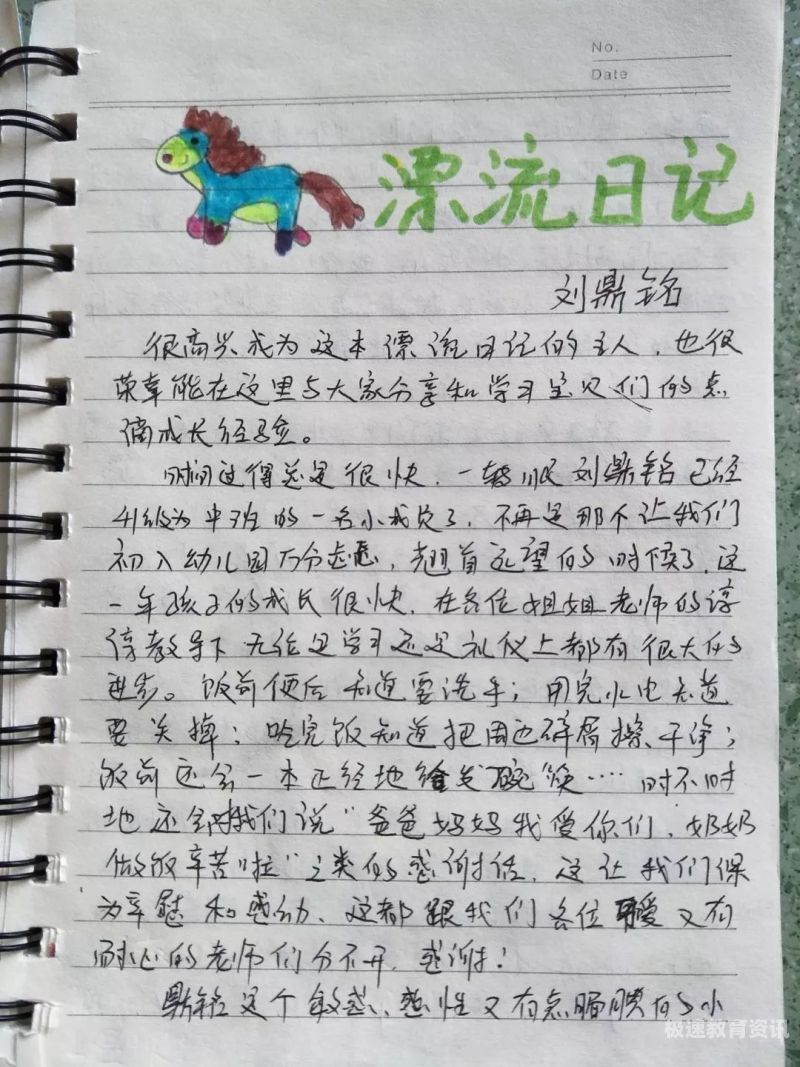 No.
Date
漂流日记
刘鼎铭
很高兴成为这本漂流日记的主人，也很
荣幸能在这里与大家分享和学习宝贝们的点
滴成长经验。
时间过得总是很快，一转眼刘鼎铭已经
升级为中班的一名小成员了，不再是那个让我们
初入幼儿园万分焦虑，翘首远望的时候了，这
一年孩子的成长很快，在各位姐姐老师的谆
谆教导下无论是学习还是礼仪上都有很大的
进步。饭前便后知道要洗手；用完水电知道
要关掉；吃完饭知道把周边碎屑擦干净；
饭前还会一本正经地给发碗筷……时不时
地还会对我们说“爸爸妈妈我爱你们，奶奶
做饭辛苦啦”之类的感谢话，这让我们深
为幸慰和感动、这都跟我们各位可爱又有
耐心的老师们分不开，感谢！
鼎铭是个敏感、感性又有点腼腆的小
极速教育资讯